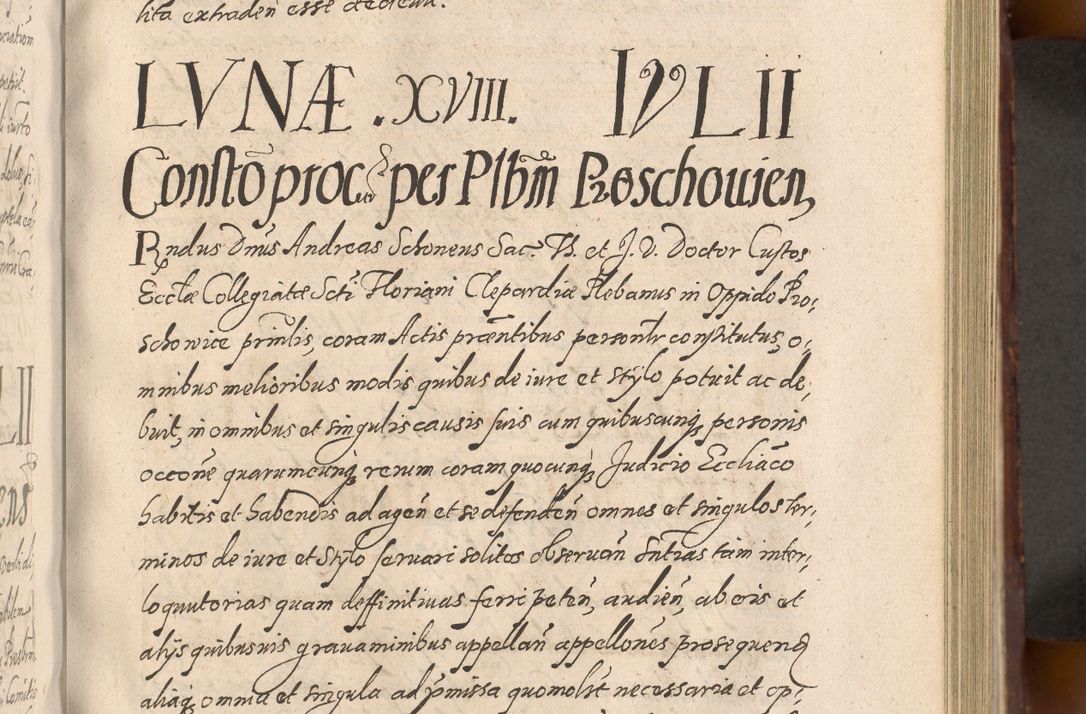 lita extraden̄ esse decreuit.
LVNÆ . XVIII. IVLII
Constō procur per Plbm̄ Proschouien,
Rndus Dnūs Andreas Schoneus Sac. Th. et J. V. Doctor Custos
Ecclæ Collegiatæ Scti Floriani Clepardiæ Plebanus in Oppido Pro,
schowice prinlis, coram Actis præntibus personlr constitutus, o,
mnibus melioribus modis quibus de iure et stÿlo potuit ac de,
buit, in omnibus et singulis causis suis cum quibuscunq, personis
occone quarumcunq, rerum coram quocunq, Judicio Eccliaco
habitis et habendis ad agen̄ et se defenden̄ omnes et singulos ter,
minos de iure et stÿlo seruari solitos obseruan̄ sntias tam inter,
loquutorias quam deffinitiuas ferri peten̄, audien̄, ab eis et
alijs quibusuis grauaminibus appellan̄ appellones prosequend
aliaq, omnia et singula ad pmissa quomolit necessaria et op,